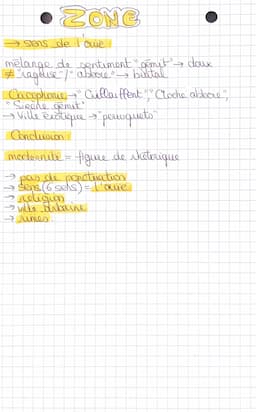 ZONE
→ sens de l'ouïe
mélange de sentiment "gémit" → doux
≠ "rageuse" / "aboie" → brutal
Cacophonie → "Cloche aboie",
"Sirène gémit"
→ Ville exotique → "perroquets"
Conclusion
modernité = figure de rhétorique
→ pas de ponctuation
→ sens (6 sens) = l'ouïe
→ religion
→ ville urbaine
→ rimes